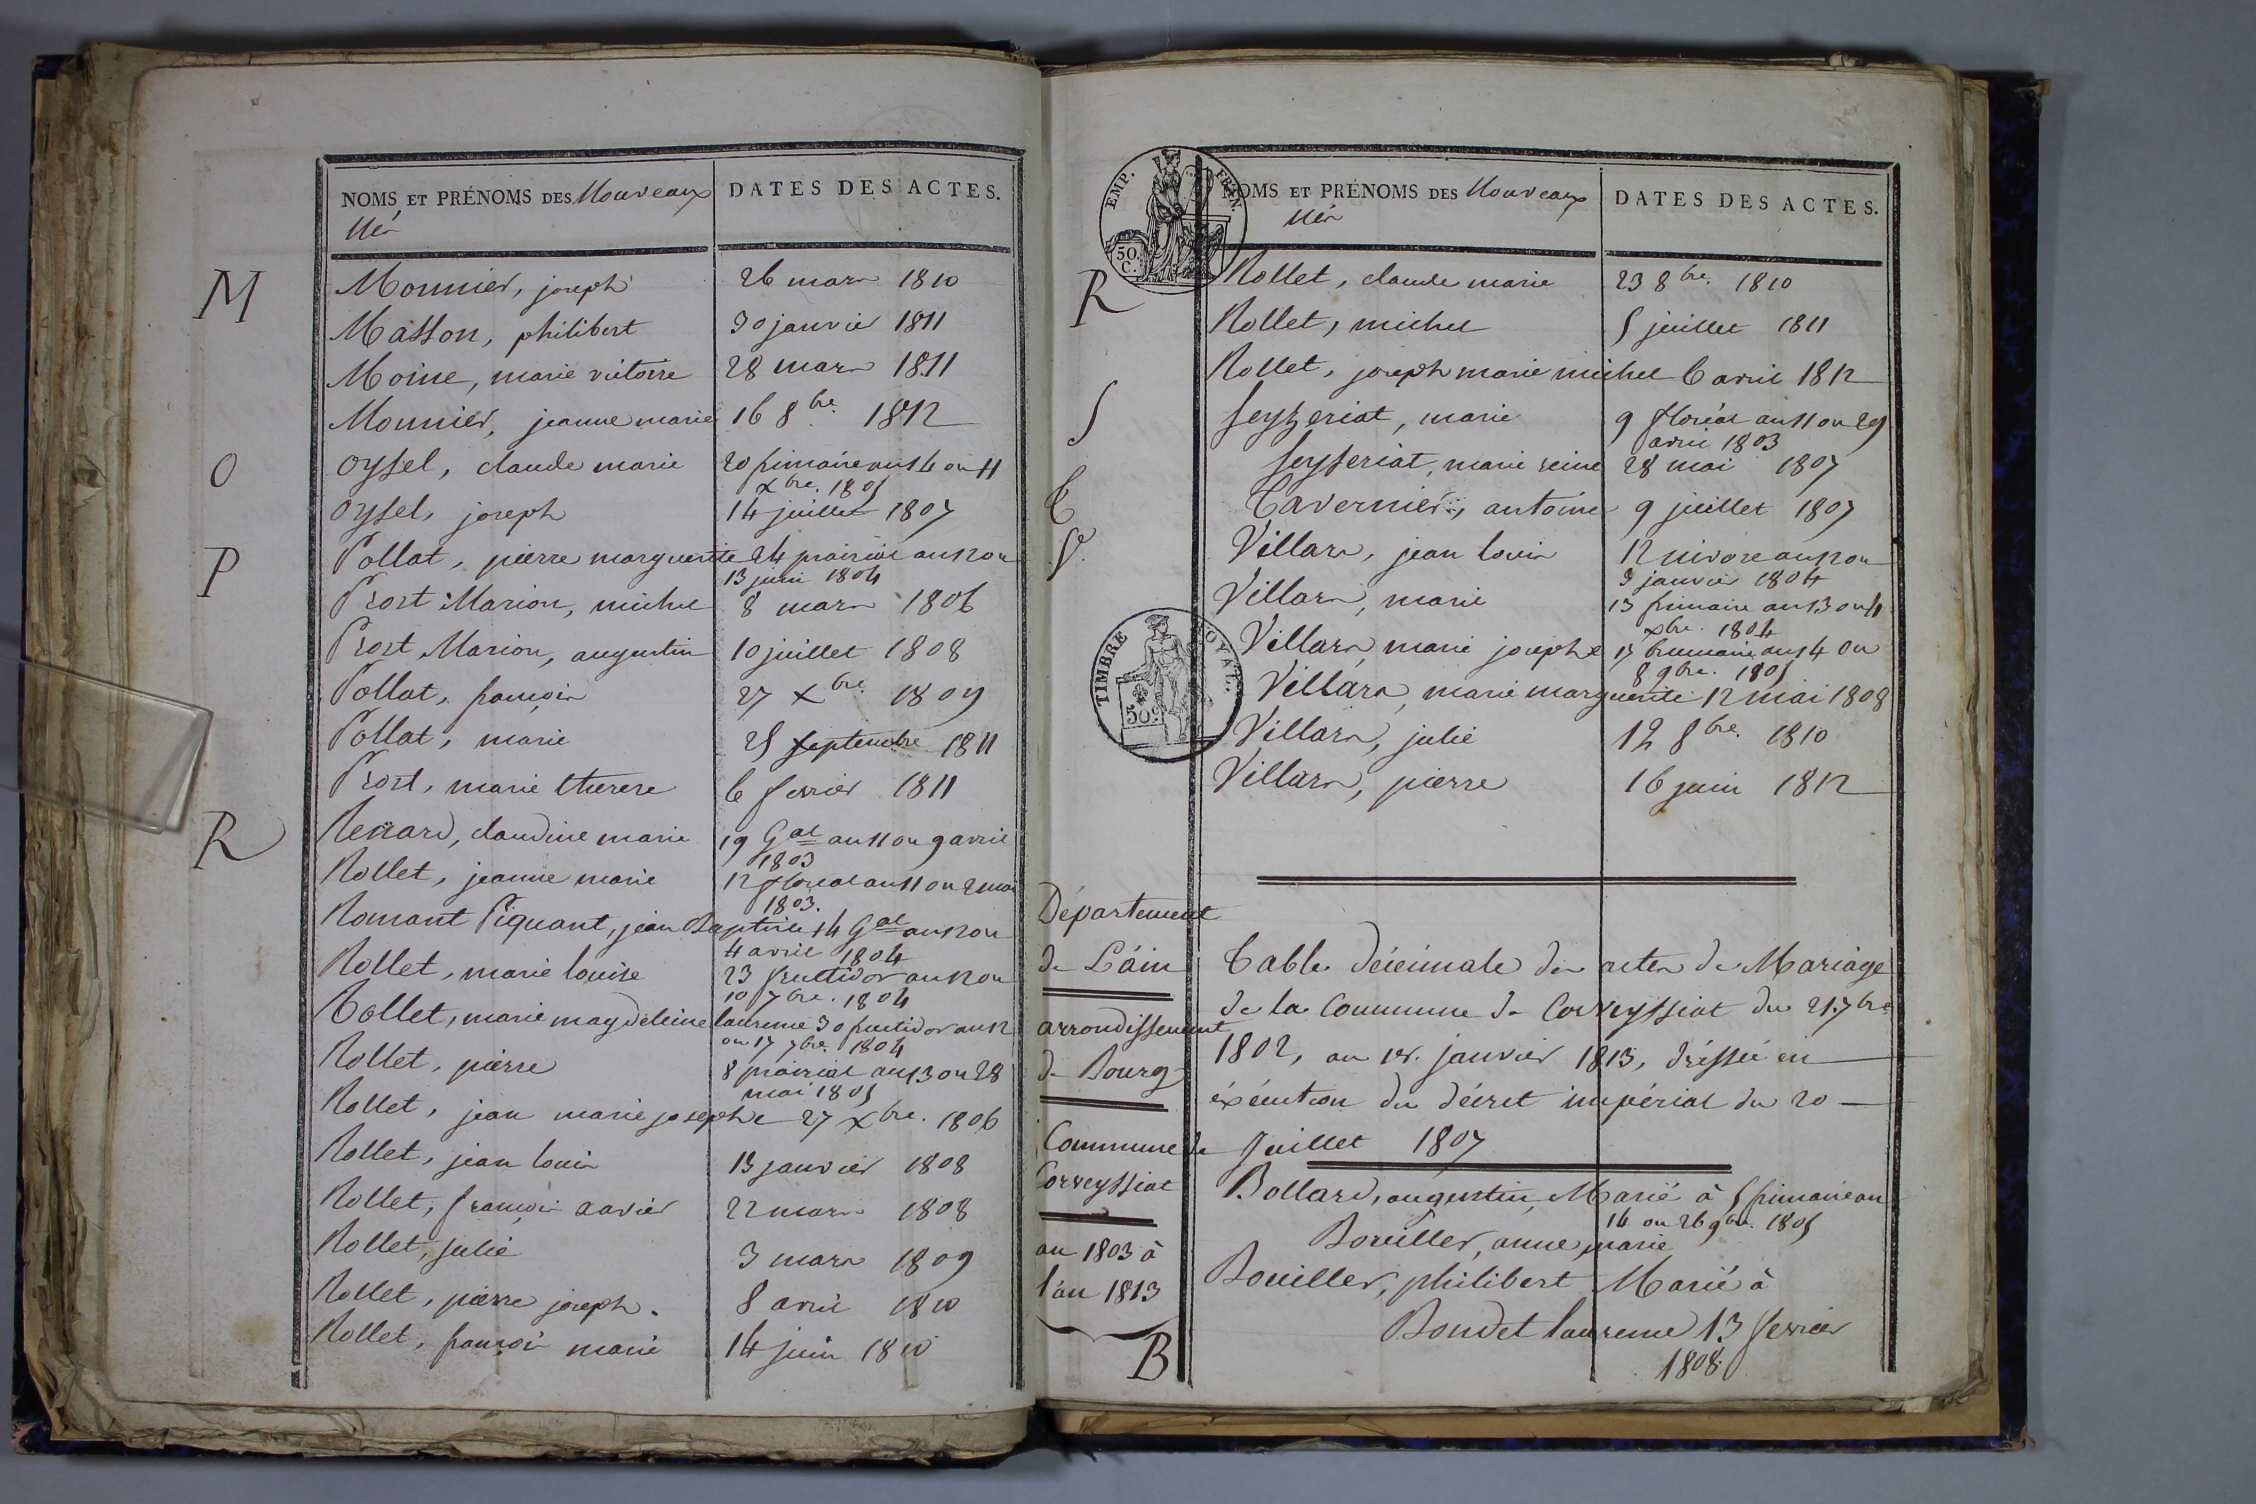 NOMS ET PRÉNOMS DES Nouveaux
Nés
DATES DES ACTES.
M
Monnier, joseph 26 mars 1810
Masson, philibert 30 janvier 1811
Moine, marie victoire 28 mars 1811
Monnier, jeanne marie 16 8bre. 1812
O
Oysel, claude marie 20 frimaire an 14 ou 11
xbre. 1805
Oysel, joseph 14 juillet 1807
P
Pollat, pierre marguerite 24 prairial an 12 ou
13 juin 1804
Prost Marion, michel 8 mars 1806
Prost Marion, augustin 10 juillet 1808
Pollat, françois 27 xbre. 1809
Pollat, marie 25 septembre 1811
Prost, marie therese 6 fevrier 1811
R
Renard, claudine marie 19 Gal an 11 ou 9 avril
1803
Rollet, jeanne marie 12 floreal an 11 ou 2 mai
1803.
Romant Piquant, jean Baptiste 14 Gal an 12 ou
4 avril 1804
Rollet, marie louise 23 fructidor an 12 ou
10 7bre. 1804
Rollet, marie magdeleine laurence 30 fructidor an 12
ou 17 7bre. 1804
Rollet, pierre 8 prairial an 13 ou 28
mai 1805
Rollet, jean marie josephe 27 xbre. 1806
Rollet, jean louis 13 janvier 1808
Rollet, françois xavier 22 mars 1808
Rollet, julie 3 mars 1809
Rollet, pierre joseph. 8 avril 1810
Rollet, françois marie 14 juin 1810
EMP. FRAN.
50.
C.
NOMS ET PRÉNOMS DES Nouveaux
Nés
DATES DES ACTES.
R
Rollet, claude marie 23 8bre. 1810
Rollet, michel 5 juillet 1811
Rollet, joseph marie michel 6 avril 1812
S
Seyzeriat, marie 9 floréal an 11 ou 29
avril 1803
Seyseriat, marie reine 28 mai 1807
T
Tavernier, antoine 9 juillet 1807
V.
Villars, jean louis 12 nivose an 12 ou
3 janvier 1804
Villars, marie 13 frimaire an 13 ou 4
xbre. 1804
Villars, marie josephe 17 brumaire an 14 ou
8 9bre. 1805
Villars, marie marguerite 12 mai 1808
Villars, julie 12 8bre. 1810
Villars, pierre 16 juin 1812
TIMBRE ROYAL.
50c
Département
de L'ain
arrondissement
de Bourg
Commune de
Corveyssiat
an 1803 à
l'an 1813
Table décénnale des actes de Mariage
de la Commune de Corveyssiat du 21 7bre
1802, au 1er. janvier 1813, dréssée en
éxécution du décret impérial du 20
Juillet 1807
B
Bollard, augustin, Marié à 5 frimaire an
14 ou 26 9bre. 1805
Bouiller, anne marie
Bouiller, philibert Marié à
Boudet laurence 13 fevrier
1808.